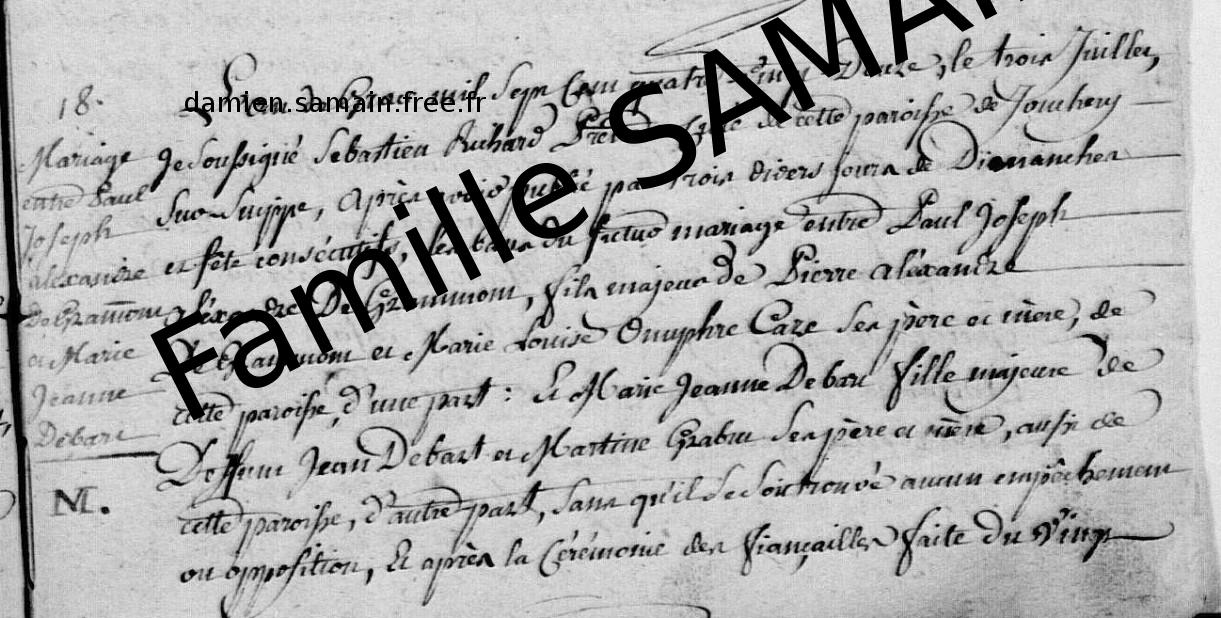 18.
Mariage
entre Paul
Joseph
alexandre
De Gramont
et Marie
Jeanne
Debart
M.
damien.samain.free.fr
Famille SAMAIN
L'an de grace mil sept cent quatre vingt Douze, le trois Juillet,
Je soussigné Sebastien Richard Prêtre Curé de cette paroisse de Jonchery
sur Suippe, Après avoir publié par trois divers jours de Dimanches
et fête consécutifs, les bans du futur mariage entre Paul Joseph
aléxandre De Grammont, fils majeur de Pierre aléxandre
De Grammont et Marie Louise Onuphre Caze ses père et mère, de
cette paroisse, d'une part : Et Marie Jeanne Debart fille majeure de
Deffunt Jean Debart et Martine Grabut ses père et mère, aussi de
cette paroisse, d'autre part, sans qu'il se soit trouvé aucun empêchement
ou opposition, Et après la Cérémonie des fiançailles faite du Vingt